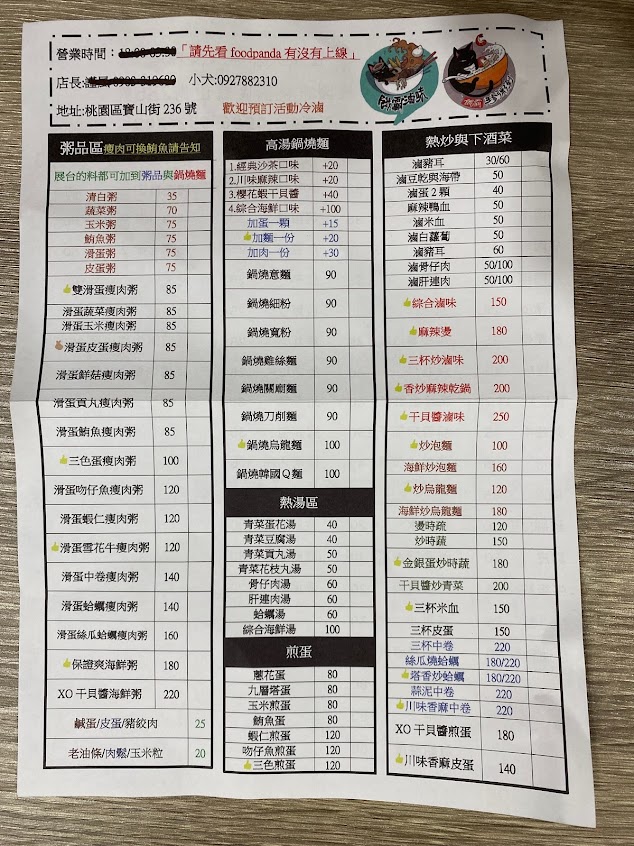 營業時間：「請先看 foodpanda 有沒有上線」
店長: 小犬:0927882310
地址:桃園區寶山街 236 號 歡迎預訂活動冷滷
粥品區瘦肉可換鮪魚請告知
展台的料都可加到粥品與鍋燒麵
清白粥 35
蔬菜粥 70
玉米粥 75
鮪魚粥 75
滑蛋粥 75
皮蛋粥 75
雙滑蛋瘦肉粥 85
滑蛋蔬菜瘦肉粥 85
滑蛋玉米瘦肉粥 85
滑蛋皮蛋瘦肉粥 85
滑蛋鮮菇瘦肉粥 85
滑蛋貢丸瘦肉粥 85
滑蛋鮪魚瘦肉粥 85
三色蛋瘦肉粥 100
滑蛋吻仔魚瘦肉粥 120
滑蛋蝦仁瘦肉粥 120
滑蛋雪花牛瘦肉粥 120
滑蛋中卷瘦肉粥 140
滑蛋蛤蠣瘦肉粥 140
滑蛋絲瓜蛤蠣瘦肉粥 160
保證爽海鮮粥 180
XO 干貝醬海鮮粥 220
鹹蛋/皮蛋/豬絞肉 25
老油條/肉鬆/玉米粒 20
高湯鍋燒麵
1.經典沙茶口味 +20
2.川味麻辣口味 +20
3.櫻花蝦干貝醬 +40
4.綜合海鮮口味 +100
加蛋一顆 +15
加麵一份 +20
加肉一份 +30
鍋燒意麵 90
鍋燒細粉 90
鍋燒寬粉 90
鍋燒雞絲麵 90
鍋燒關廟麵 90
鍋燒刀削麵 90
鍋燒烏龍麵 100
鍋燒韓國Ｑ麵 100
熱湯區
青菜蛋花湯 40
青菜豆腐湯 40
青菜貢丸湯 50
青菜花枝丸湯 50
骨仔肉湯 60
肝連肉湯 60
蛤蠣湯 60
綜合海鮮湯 100
煎蛋
蔥花蛋 80
九層塔蛋 80
玉米煎蛋 80
鮪魚蛋 80
蝦仁煎蛋 120
吻仔魚煎蛋 120
三色煎蛋 120
熱炒與下酒菜
滷豬耳 30/60
滷豆乾與海帶 50
滷蛋 2 顆 40
麻辣鴨血 50
滷米血 50
滷白蘿蔔 50
滷豬耳 60
滷骨仔肉 50/100
滷肝連肉 50/100
綜合滷味 150
麻辣燙 180
三杯炒滷味 200
香炒麻辣乾鍋 200
干貝醬滷味 250
炒泡麵 100
海鮮炒泡麵 160
炒烏龍麵 120
海鮮炒烏龍麵 180
燙時蔬 120
炒時蔬 150
金銀蛋炒時蔬 180
干貝醬炒青菜 200
三杯米血 150
三杯皮蛋 150
三杯中卷 220
絲瓜燒蛤蠣 180/220
塔香炒蛤蠣 180/220
蒜泥中卷 220
川味香麻中卷 220
XO 干貝醬煎蛋 180
川味香麻皮蛋 140